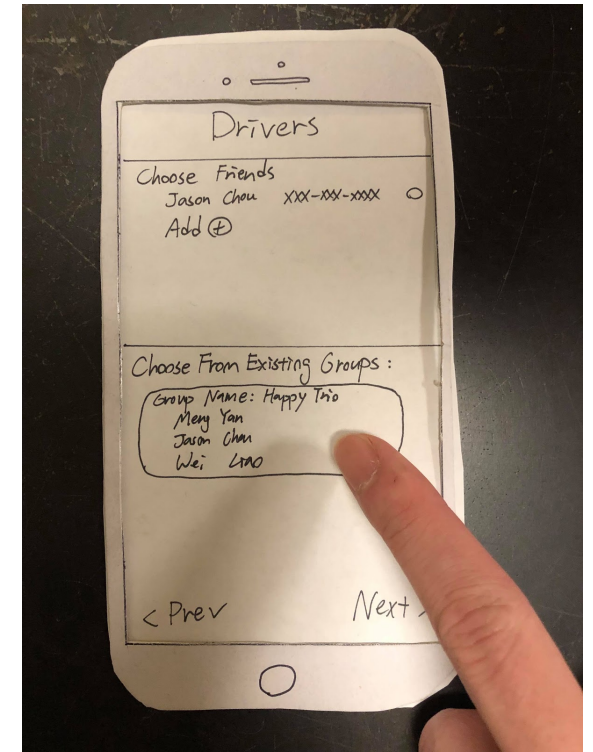 Drivers
Choose Friends
Jason Chou XXX-XXX-XXXX
Add +
Choose From Existing Groups:
Group Name: Happy Trio
Meng Yan
Jason Chou
Wei Liao
< Prev
Next >